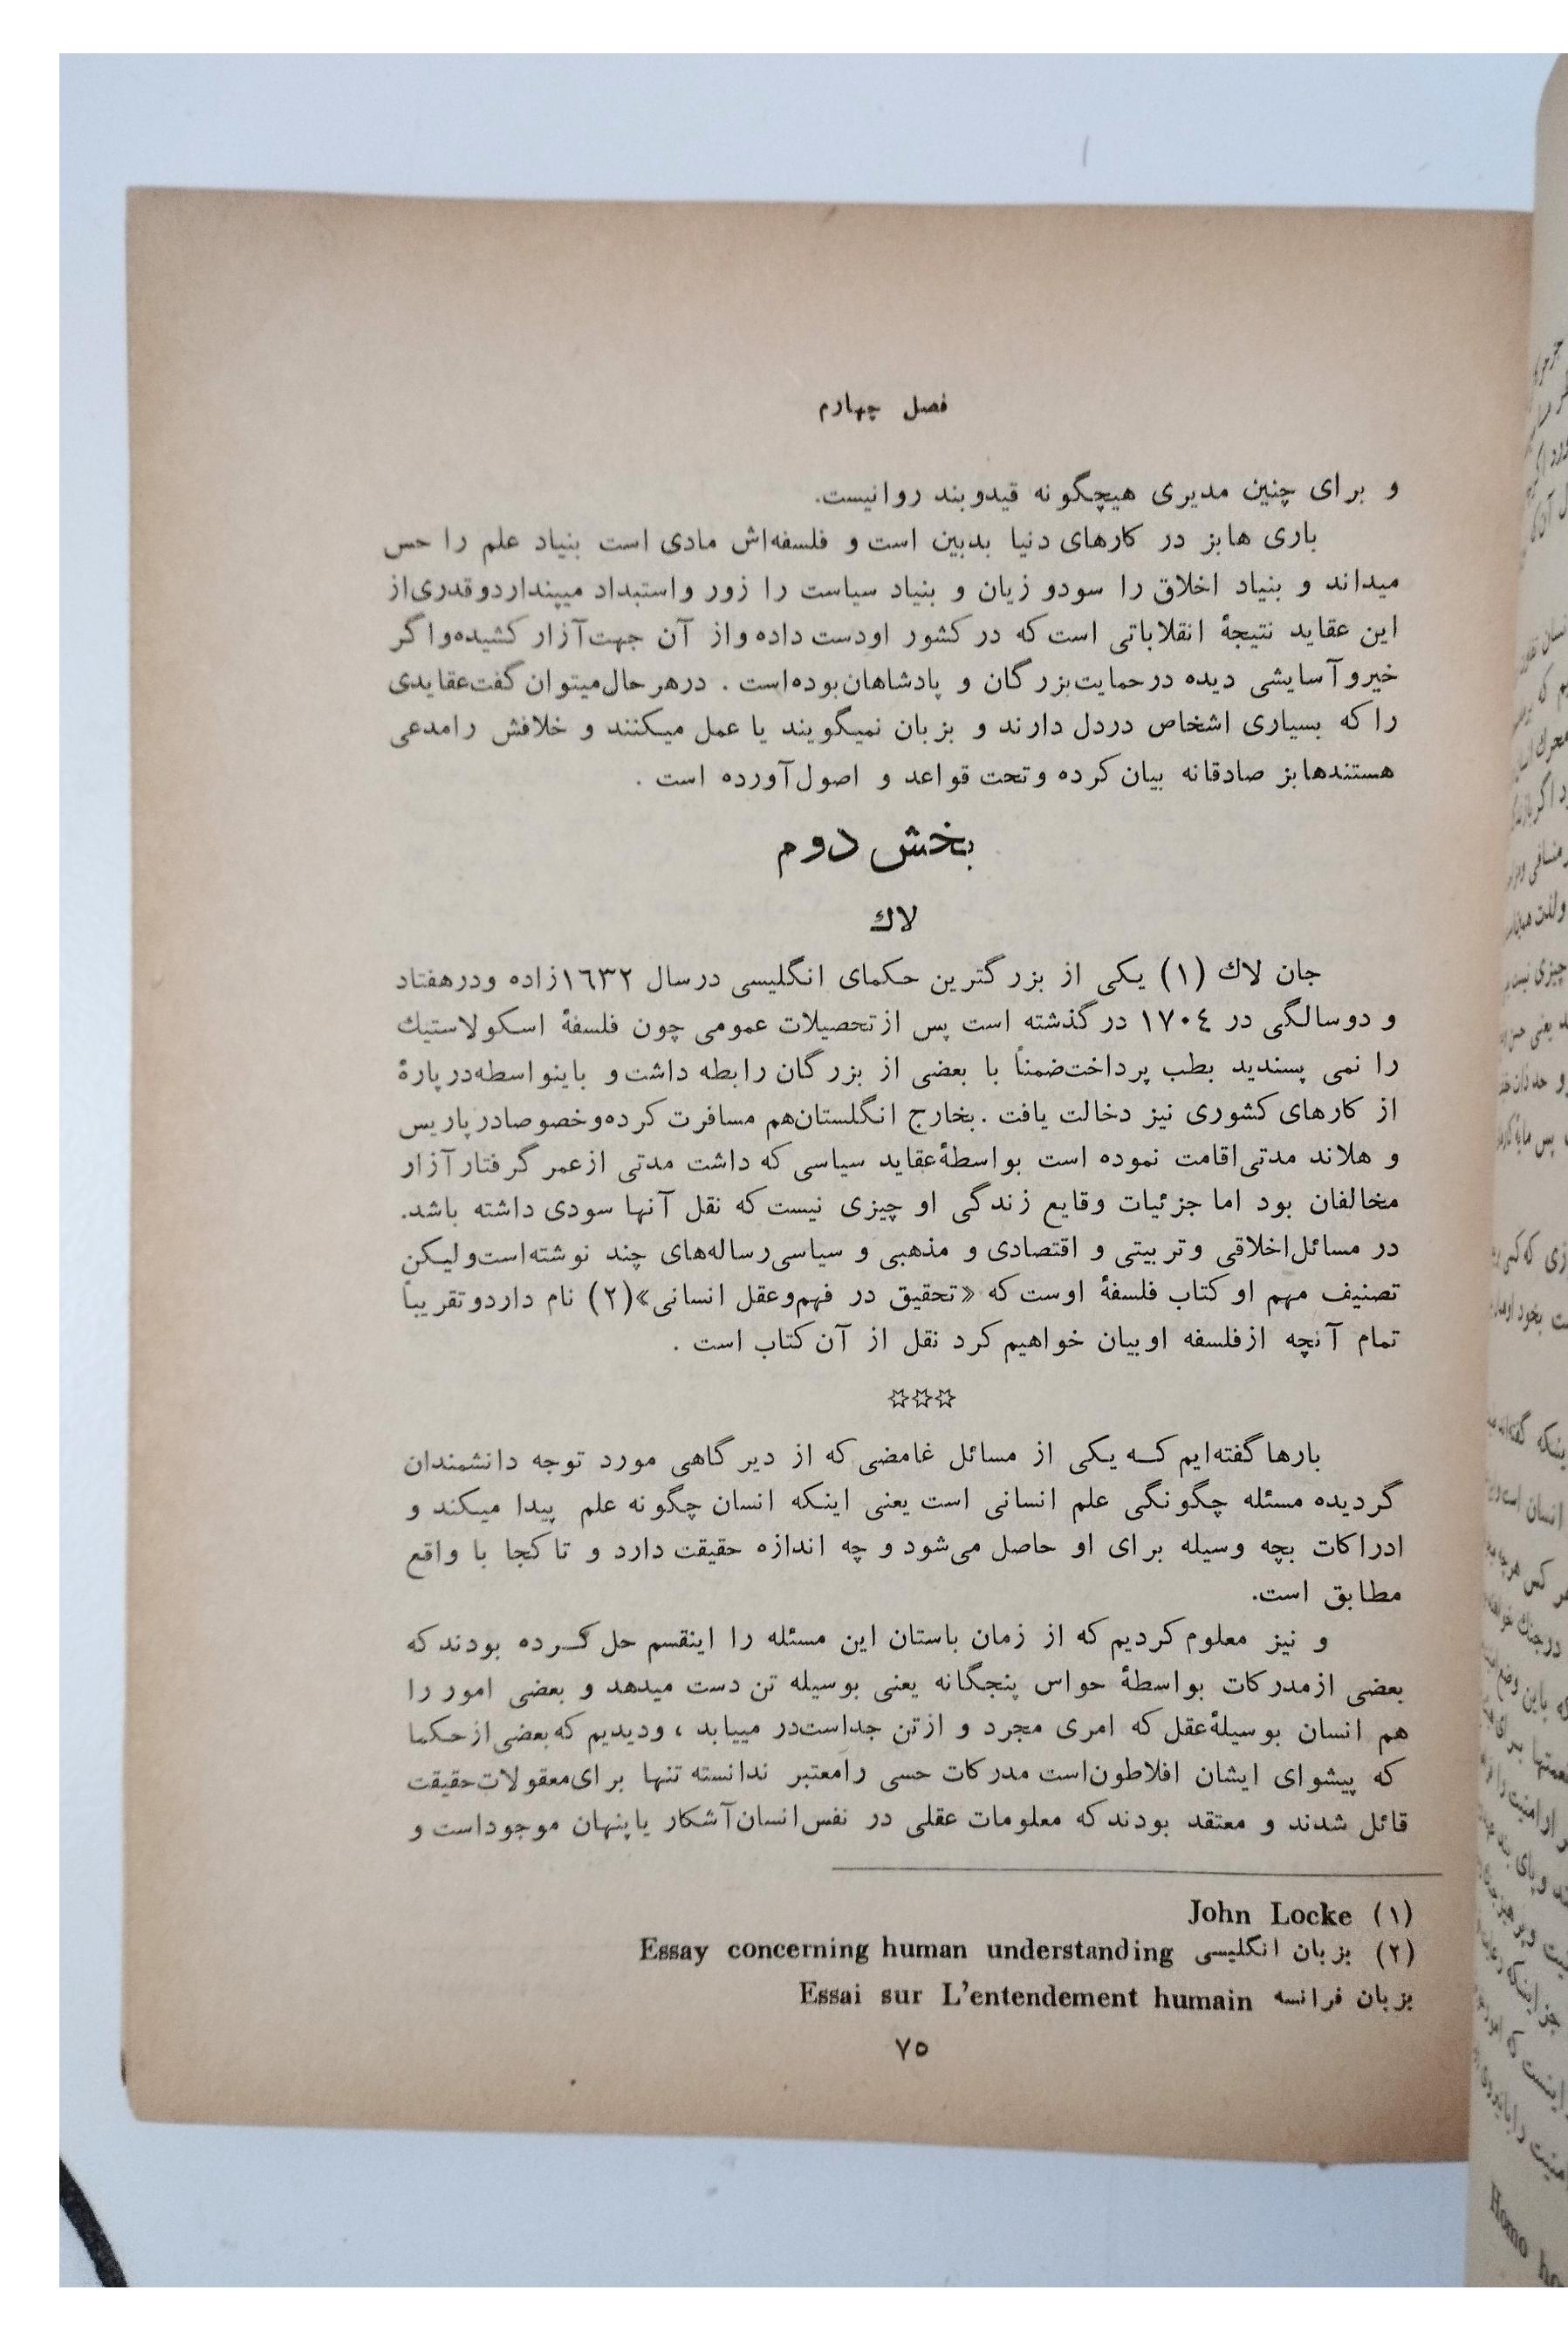 فصل چهارم
و برای چنین مدیری هیچگونه قیدوبند روانیست.
باری هابز در کارهای دنیا بدبین است و فلسفه‌اش مادی است بنیاد علم را حس
میداند و بنیاد اخلاق را سودو زیان و بنیاد سیاست را زور واستبداد میپنداردوقدری‌از
این عقاید نتیجهٔ انقلاباتی است که در کشور اودست داده واز آن جهت‌آزار کشیده‌واگر
خیروآسایشی دیده درحمایت‌بزرگان و پادشاهان‌بوده‌است . درهرحال‌میتوان گفت‌عقایدی
را که بسیاری اشخاص دردل دارند و بزبان نمیگویند یا عمل میکنند و خلافش رامدعی
هستندهابز صادقانه بیان کرده وتحت قواعد و اصول‌آورده است .
بخش دوم
لاك
جان لاك (١) یکی از بزرگترین حکمای انگلیسی درسال ١٦٣٢زاده ودرهفتاد
و دوسالگی در ١٧٠٤ درگذشته است پس ازتحصیلات عمومی چون فلسفهٔ اسکولاستیك
را نمی پسندید بطب پرداخت‌ضمناً با بعضی از بزرگان رابطه داشت‌و باینواسطه‌درپارهٔ
از کارهای کشوری نیز دخالت یافت .بخارج انگلستان‌هم مسافرت کرده‌وخصوصادرپاریس
و هلاند مدتی‌اقامت نموده است بواسطهٔ‌عقاید سیاسی که داشت مدتی ازعمر گرفتارآزار
مخالفان بود اما جزئیات وقایع زندگی او چیزی نیست‌که نقل آنها سودی داشته باشد.
در مسائل‌اخلاقی وتربیتی و اقتصادی و مذهبی و سیاسی‌رساله‌های چند نوشته‌است‌ولیکن
تصنیف مهم او کتاب فلسفهٔ اوست که «تحقیق در فهم‌وعقل انسانی»(٢) نام داردوتقریباً
تمام آنچه ازفلسفه اوبیان خواهیم کرد نقل از آن کتاب است .
☆☆☆
بارها گفته‌ایم کـه یکی از مسائل غامضی که از دیرگاهی مورد توجه دانشمندان
گردیده مسئله چگونگی علم انسانی است یعنی اینکه انسان چگونه علم پیدا میکند و
ادراکات بچه وسیله برای او حاصل می‌شود و چه اندازه حقیقت دارد و تا کجا با واقع
مطابق است.
و نیز معلوم کردیم که از زمان باستان این مسئله را اینقسم حل کـرده بودند که
بعضی ازمدرکات بواسطهٔ حواس پنجگانه یعنی بوسیله تن دست میدهد و بعضی امور را
هم انسان بوسیلهٔ‌عقل که امری مجرد و ازتن جداست‌در مییابد ، ودیدیم که‌بعضی ازحکما
که پیشوای ایشان افلاطون‌است مدرکات حسی رامعتبر ندانسته تنها برای‌معقولات‌حقیقت
قائل شدند و معتقد بودند که معلومات عقلی در نفس‌انسان‌آشکار یاپنهان موجوداست و
(١) John Locke
(٢) بزبان انگلیسی Essay concerning human understanding
بزبان فرانسه Essai sur L'entendement humain
٧٥